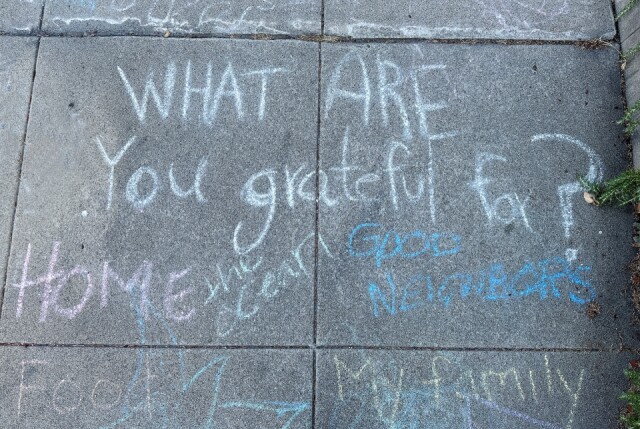 WHAT ARE
You grateful for?
HOME
the ocean
GOOD
NEIGHBORS
Food
My family